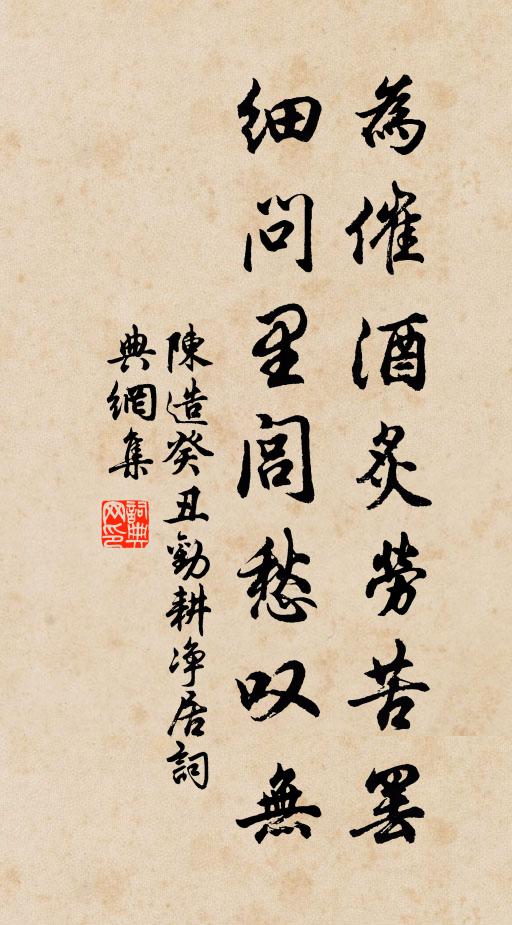 為催酒炙勞苦罷
細問里閭愁叹無
陳造癸丑勸耕净居詞
典網集
詞典網印